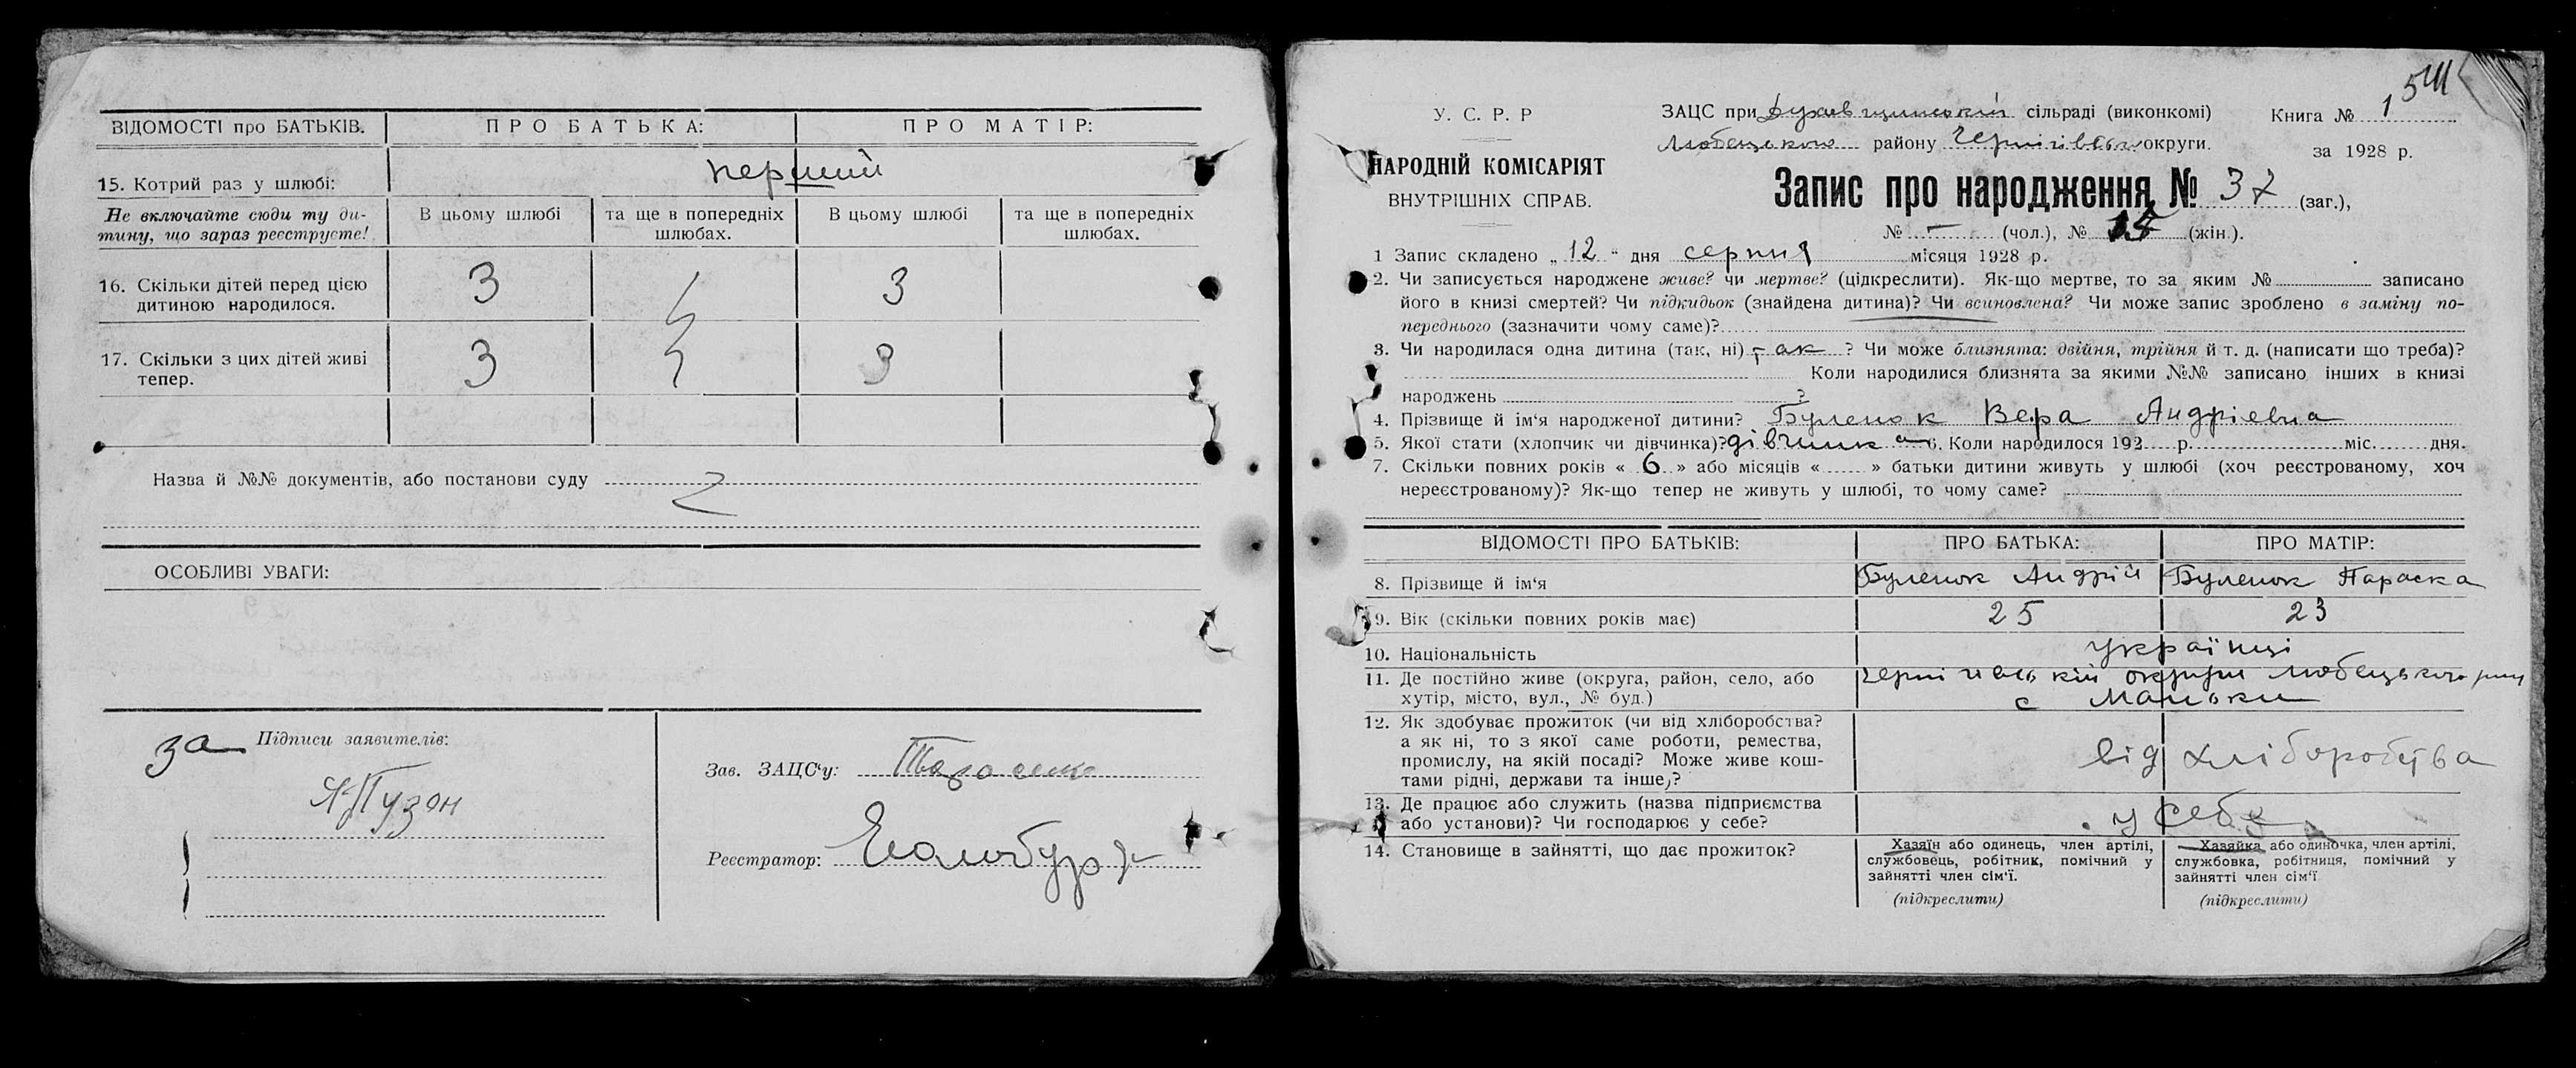 ВІДОМОСТІ про БАТЬКІВ. ПРО БАТЬКА: ПРО МАТІР:
15. Котрий раз у шлюбі: перший
Не включайте сюди ту ди-
тину, що зараз реєструєте!
В цьому шлюбі
та ще в попередніх
шлюбах.
В цьому шлюбі
та ще в попередніх
шлюбах.
16. Скільки дітей перед цією
дитиною народилося. 3 3
17. Скільки з цих дітей живі
тепер. 3 3
Назва й №№ документів, або постанови суду
ОСОБЛИВІ УВАГИ:
за Підписи заявителів:
Пузон
Зав. ЗАЦС'у: Тарасенко
Реєстратор:
У. С. Р. Р
НАРОДНІЙ КОМІСАРІЯТ
ВНУТРІШНІХ СПРАВ.
ЗАЦС при сільраді (виконкомі)
Любецького району Чернігівської округи.
Книга № 1
за 1928 р.
Запис про народження № 37 (заг.),
№ – (чол.), № 15 (жін.).
1 Запис складено „ 12 " дня серпня місяця 1928 р.
2. Чи записується народжене живе? чи мертве? (підкреслити). Як-що мертве, то за яким № записано
його в книзі смертей? Чи підкидьок (знайдена дитина)? Чи всиновлена? Чи може запис зроблено в заміну по-
переднього (зазначити чому саме)?
3. Чи народилася одна дитина (так, ні) так ? Чи може близнята: двійня, трійня й т. д. (написати що треба)?
Коли народилися близнята за якими №№ записано інших в книзі
народжень ?
4. Прізвище й ім'я народженої дитини? Буленок Вера Андріевна
5. Якої стати (хлопчик чи дівчинка)? дівчинка 6. Коли народилося 192 р. міс. дня.
7. Скільки повних років « 6 » або місяців « » батьки дитини живуть у шлюбі (хоч реєстрованому, хоч
нереєстрованому)? Як-що тепер не живуть у шлюбі, то чому саме?
ВІДОМОСТІ ПРО БАТЬКІВ: ПРО БАТЬКА: ПРО МАТІР:
8. Прізвище й ім'я Буленок Андрій Буленок Параска
9. Вік (скільки повних років має) 25 23
10. Національність українці
11. Де постійно живе (округа, район, село, або
хутір, місто, вул., № буд.)
округи Любецького
с Маньки
12. Як здобуває прожиток (чи від хліборобства?
а як ні, то з якої саме роботи, ремества,
промислу, на якій посаді? Може живе кош-
тами рідні, держави та інше,?
від хліборобства
13. Де працює або служить (назва підприємства
або установи)? Чи господарює у себе?
у себе
14. Становище в зайнятті, що дає прожиток?
Хазяїн або одинець, член артілі,
службовець, робітник, помічний у
зайнятті член сім'ї.
(підкреслити)
Хазяйка або одиночка, член артілі,
службовка, робітниця, помічний у
зайнятті член сім'ї
(підкреслити)